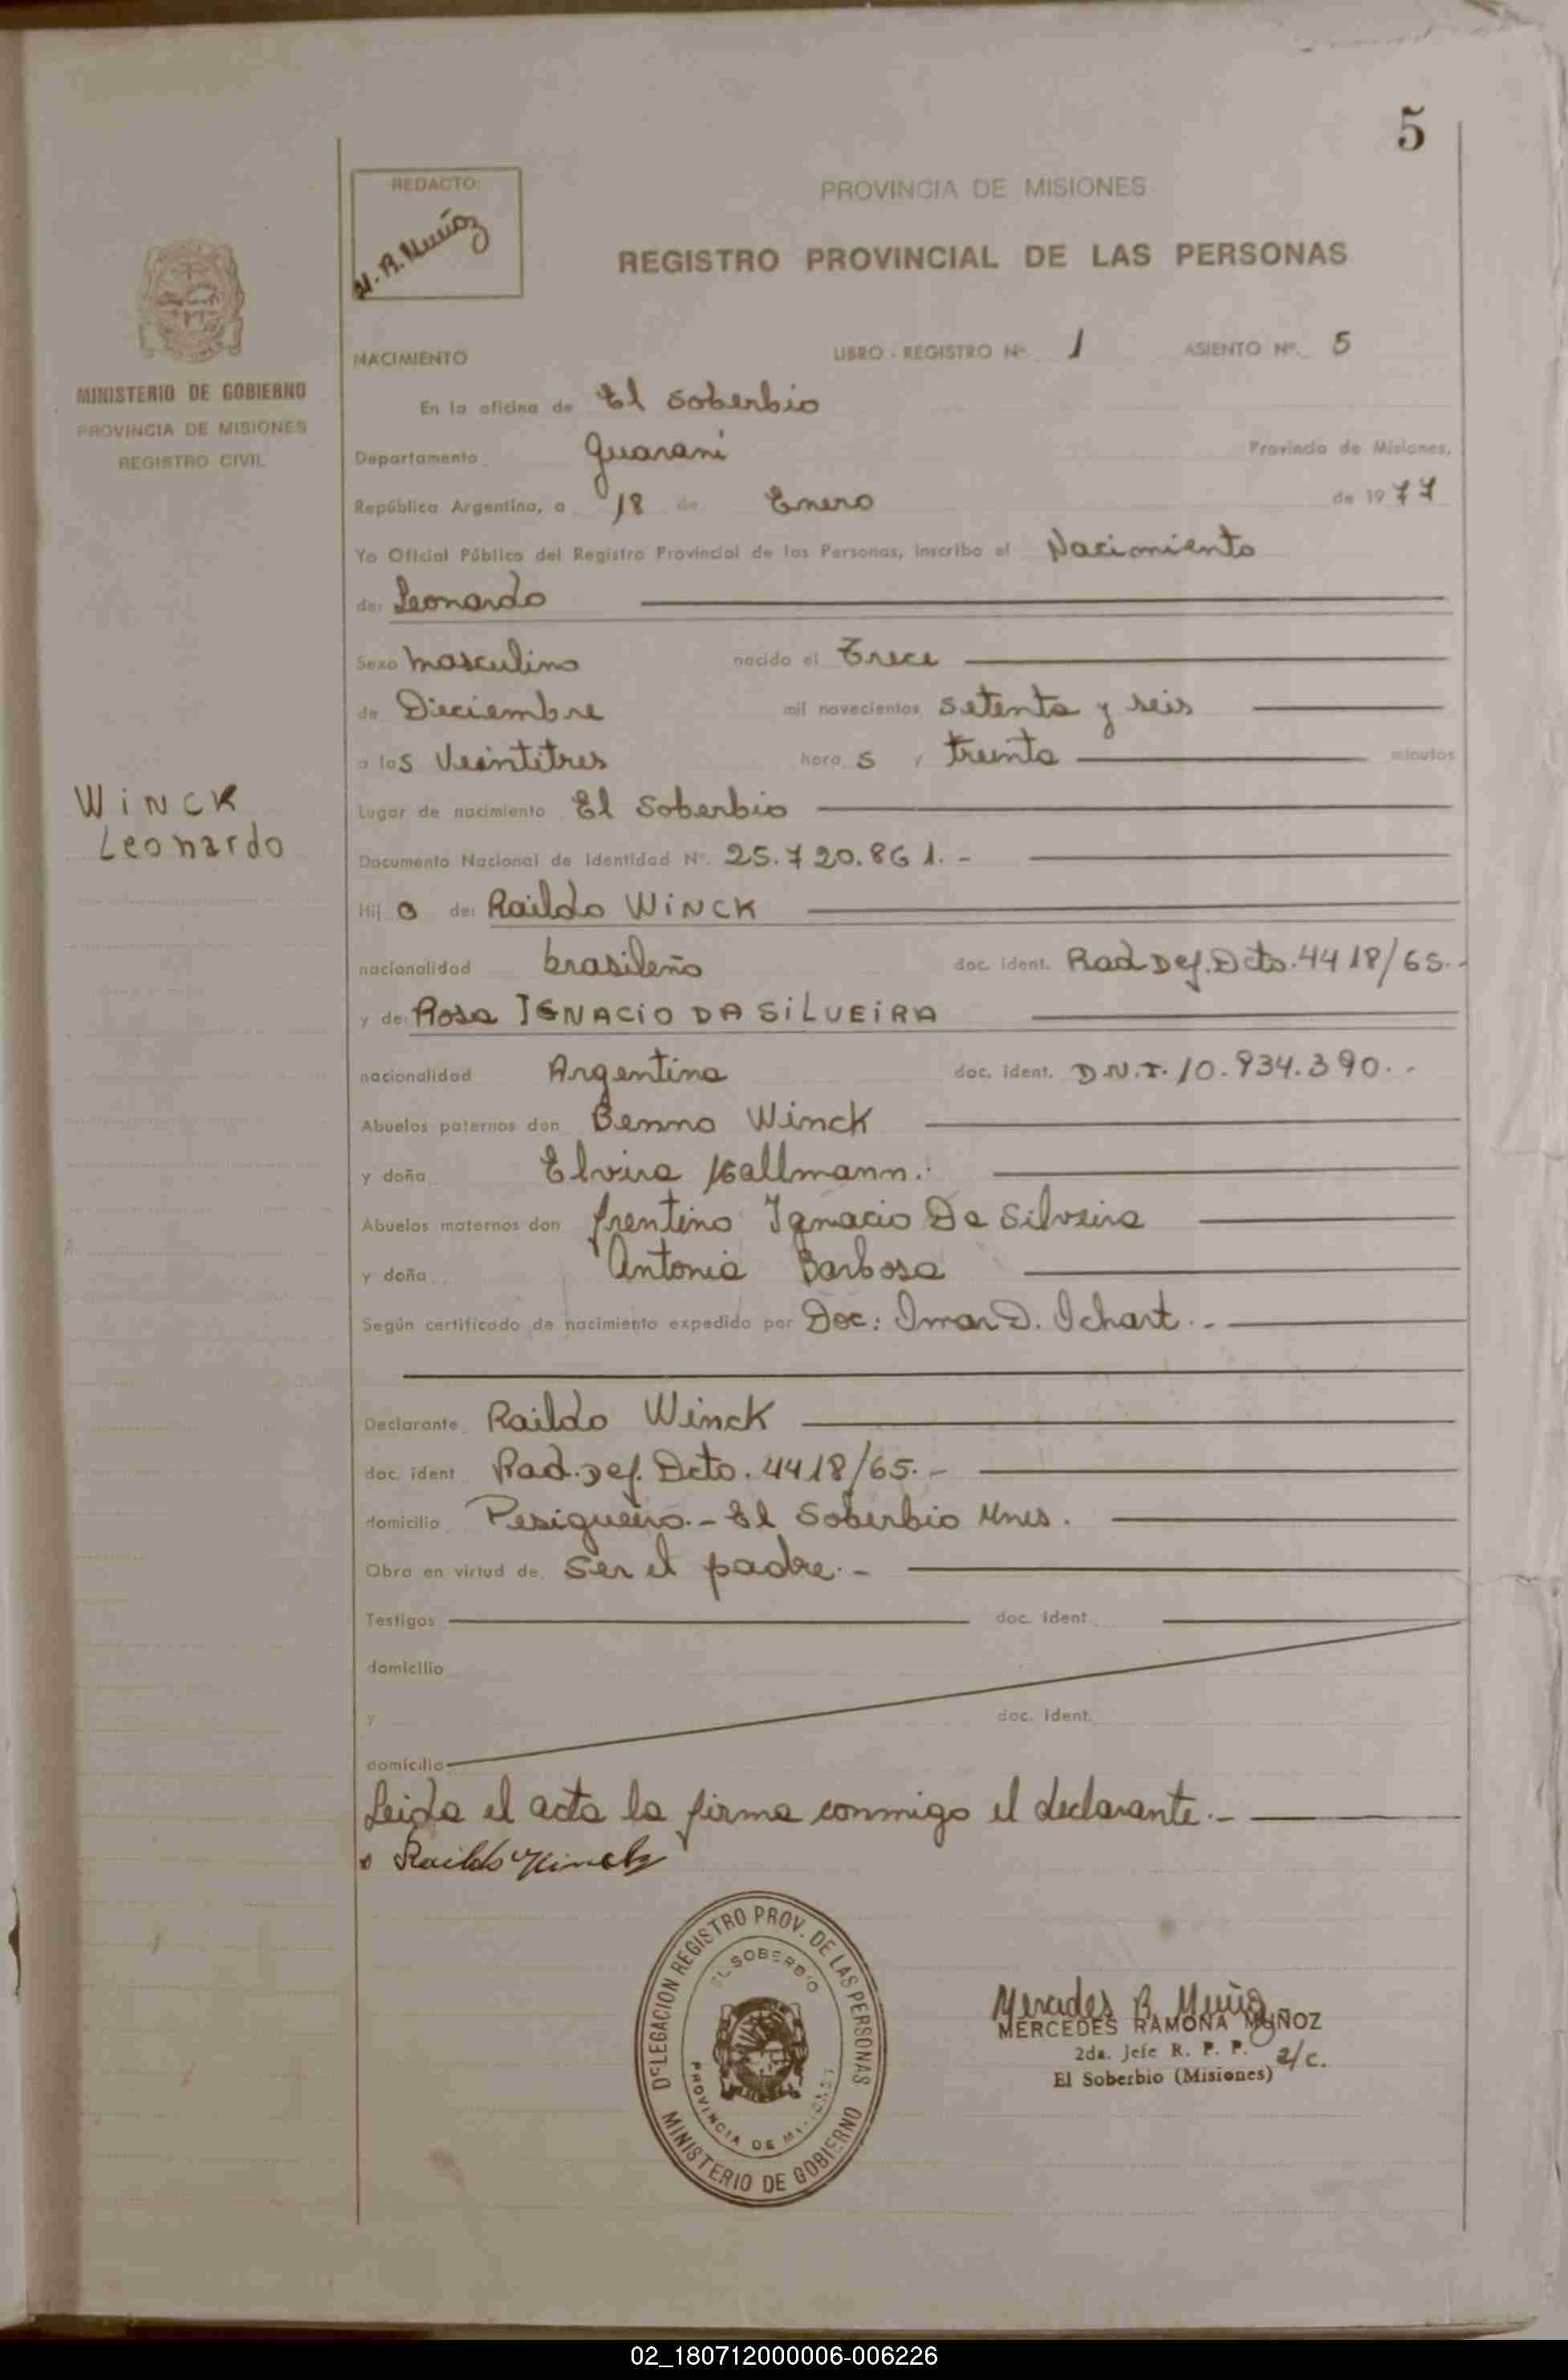 5
REDACTO:
M. R. Muñoz
PROVINCIA DE MISIONES
REGISTRO PROVINCIAL DE LAS PERSONAS
MINISTERIO DE GOBIERNO
PROVINCIA DE MISIONES
REGISTRO CIVIL
NACIMIENTO LIBRO - REGISTRO Nº. 1 ASIENTO Nº. 5
En la oficina de El Soberbio
Departamento Guarani Provincia de Misiones,
República Argentina, a 18 de Enero de 1977
Yo Oficial Público del Registro Provincial de las Personas, inscribo el Nacimiento
de: Leonardo
Sexo Masculino nacido el Trece
de Dieciembre mil novecientos setenta y seis
a las Veintitres horas y treinta minutos
Winck
Leonardo
Lugar de nacimiento El Soberbio
Documento Nacional de Identidad Nº. 25.720.861.-
Hijo de: Raildo WINCK
nacionalidad brasileño doc. ident. Rad Def. Dcto. 4418/65.-
y de: Rosa IGNACIO DA SILVEIRA
nacionalidad Argentina doc. ident. D.N.I. 10.934.390.-
Abuelos paternos don Benno Winck
y doña Elvira Kallmann.
Abuelos maternos don Frentino Ignacio Da Silveira
y doña Antonia Barbosa
Según certificado de nacimiento expedido por Doc: Omar D. Ichart.-
Declarante Raildo Winck
doc. ident Rad. Def. Dcto. 4418/65.-
domicilio Pesigueiro.- El Soberbio Mnes.
Obra en virtud de ser el padre.-
Testigos doc. ident.
domicilio
y doc. ident.
domicilio
Leida el acta la firma conmigo el declarante.-
Raildo Winck
DELEGACION REGISTRO PROV. DE LAS PERSONAS
EL SOBERBIO
PROVINCIA DE MISIONES
MINISTERIO DE GOBIERNO
Mercedes R. Muñoz
MERCEDES RAMONA MUÑOZ
2da. Jefe R. P. P. a/c.
El Soberbio (Misiones)
02_180712000006-006226